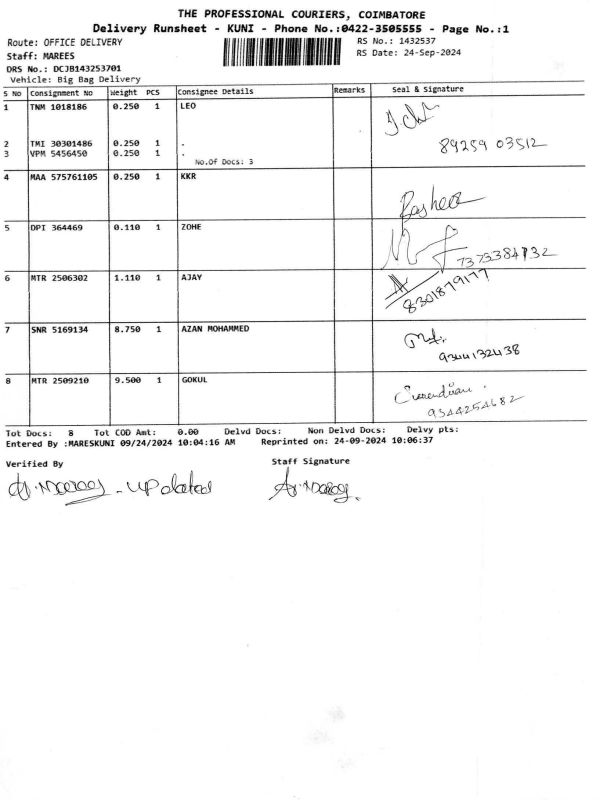 THE PROFESSIONAL COURIERS, COIMBATORE
Delivery Runsheet - KUNI - Phone No.:0422-3505555 - Page No.:1
Route: OFFICE DELIVERY RS No.: 1432537
Staff: MAREES RS Date: 24-Sep-2024
DRS No.: DCJB143253701
Vehicle: Big Bag Delivery
S No Consignment No Weight PCS Consignee Details Remarks Seal & Signature
1 TNM 1018186 0.250 1 LEO
2 TMI 30301486 0.250 1 . 89259 03512
3 VPM 5456450 0.250 1 .
No.Of Docs: 3
4 MAA 575761105 0.250 1 KKR
Rasheed
5 DPI 364469 0.110 1 ZOHE
7373384732
6 MTR 2506302 1.110 1 AJAY
8301879177
7 SNR 5169134 8.750 1 AZAN MOHAMMED
9344132438
8 MTR 2509210 9.500 1 GOKUL
9344254682
Tot Docs: 8 Tot COD Amt: 0.00 Delvd Docs: Non Delvd Docs: Delvy pts:
Entered By :MARESKUNI 09/24/2024 10:04:16 AM Reprinted on: 24-09-2024 10:06:37
Verified By Staff Signature
updated